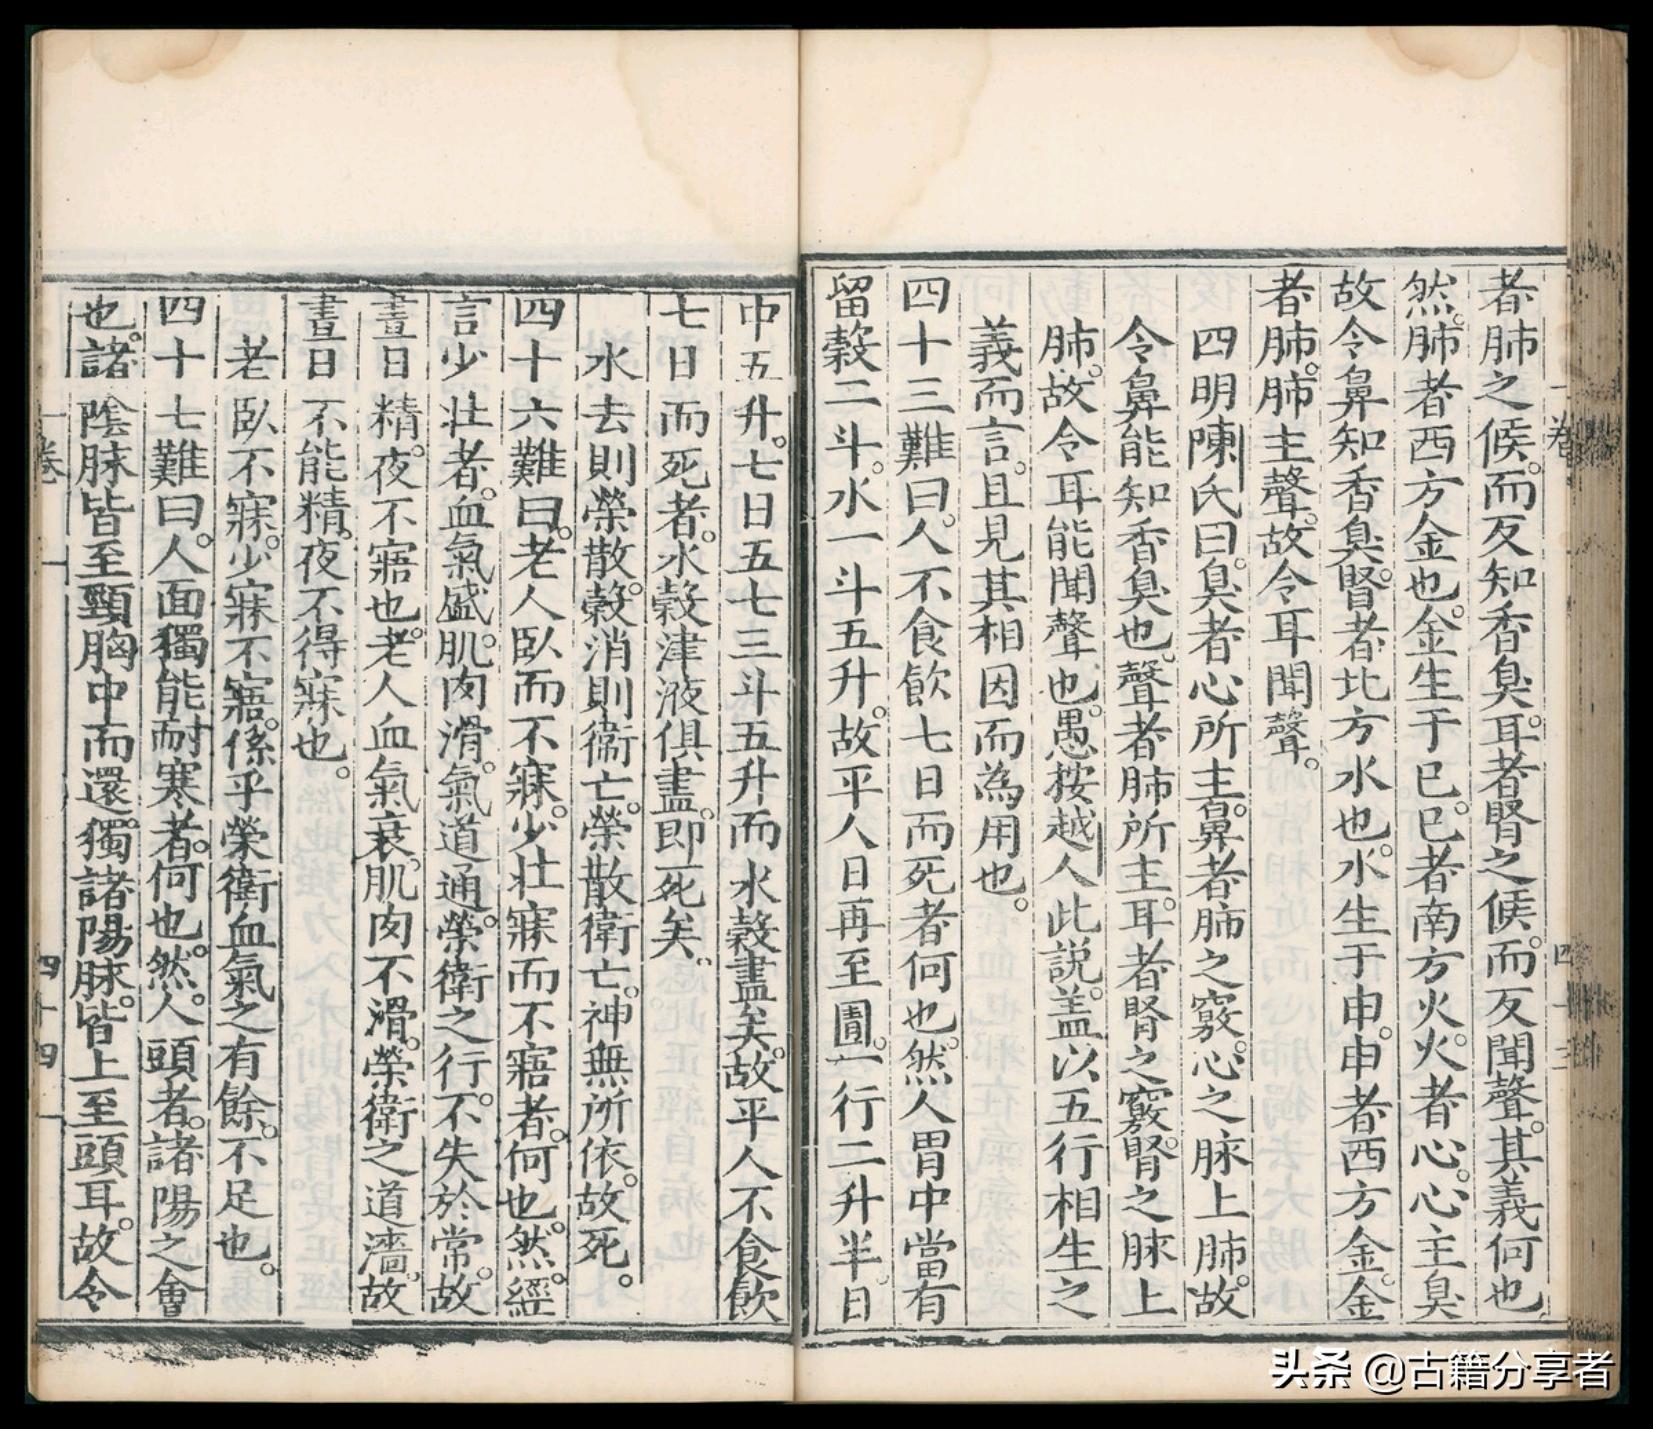 者肺之候。而反知香臭。耳者腎之候。而反聞聲。其義何也。
然。肺者西方金也。金生于巳。巳者南方火。火者心。心主臭
故令鼻知香臭。腎者北方水也。水生于申。申者西方金。金
者肺。肺主聲。故令耳聞聲。
四明陳氏曰。臭者心所主。鼻者肺之竅。心之脉上肺。故
令鼻能知香臭也。聲者肺所主。耳者腎之竅。腎之脉上
肺。故令耳能聞聲也。愚按越人此説。盖以五行相生之
義而言。且見其相因而為用也。
四十三難曰。人不食飲七日而死者何也。然人胃中當有
留穀二斗。水一斗五升。故平人日再至圊。一行二升半。日
中五升。七日五七三斗五升而水穀盡矣。故平人不食飲
七日而死者。水穀津液俱盡。即死矣。
水去則榮散。穀消則衞亡。榮散衛亡。神無所依。故死。
四十六難曰。老人臥而不寐。少壮寐而不寤者。何也。然。經
言少壮者。血氣盛。肌肉滑。氣道通。榮衛之行。不失於常。故
晝日精。夜不寤也。老人血氣衰。肌肉不滑。榮衛之道濇。故
晝日不能精。夜不得寐也。
老臥不寐。少寐不寤。係乎榮衛血氣之有餘。不足也。
四十七難曰。人面獨能耐寒者。何也。然。人頭者。諸陽之會
也。諸陰脉皆至頸胸中而還。獨諸陽脉。皆上至頭耳。故令
卷一
四十三
卷一
四十四
头条 @古籍分享者